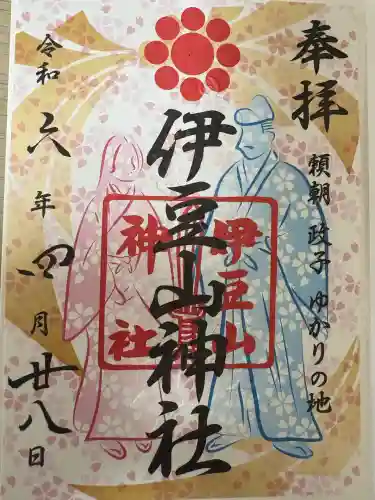 奉拝
頼朝 政子 ゆかりの地
伊豆山神社
伊豆山
神社
令和六年四月廿八日